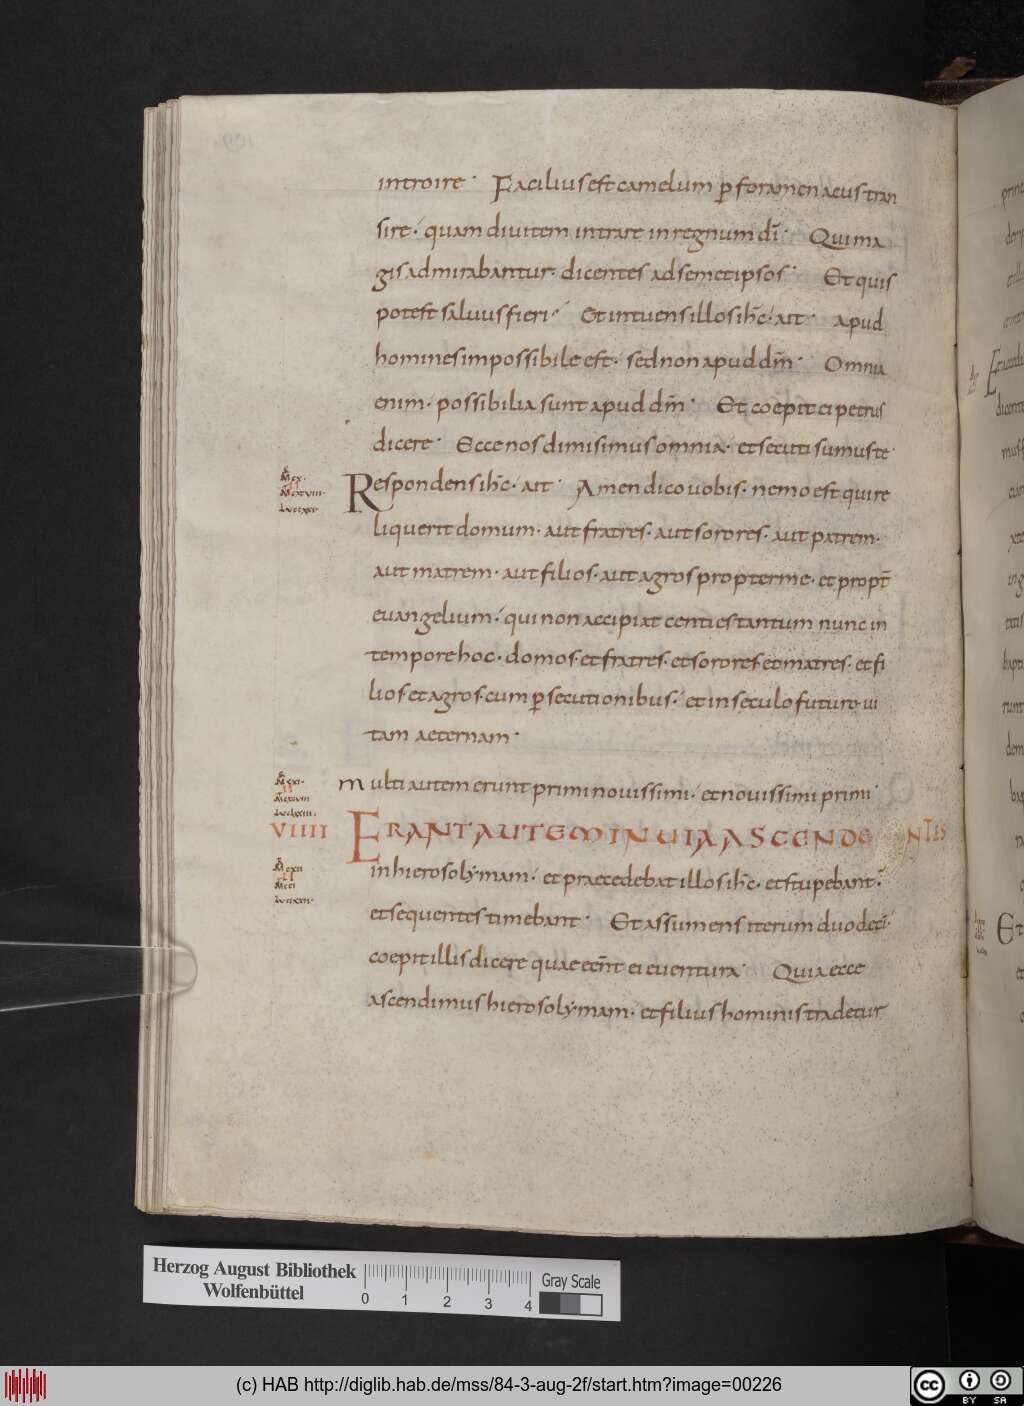 introire· Facilius est camelum p foramen acus tran
sire· quam divitem intrare in regnum dī· Qui ma
gis admirabantur· dicentes ad semetipsos· Et quis
potest salvus fieri· Et intuens illos ihc̄· ait· apud
homines impossibile est· sed non apud dm̄· Omnia
enim· possibilia sunt apud dm̄· Et coepit ei petrus
dicere· Ecce nos dimisimus omnia· et secuti sumus te·
Respondens ihc̄· ait· Amen dico vobis· nemo est qui re
liquerit domum· aut fratres· aut sorores· aut patrem·
aut matrem· aut filios· aut agros propter me· et propt̄
evangelium· qui non accipiat centies tantum nunc in
tempore hoc· domos· et fratres· et sorores et matres· et fi
lios et agros· cum p secutionibus· et in seculo futuro vi
tam aeternam·
multi autem erunt primi novissimi· et novissimi primi·
VIIII ERANT AUTEM IN UIA ASCENDENTES
in hierosolymam· et praecedebat illos ihc̄· et stupebant·
et sequentes timebant· Et assumens iterum duodeci·
coepit illis dicere quae een̄t ei eventura· Quia ecce
ascendimus hierosolymam· et filius hominis tradetur
Herzog August Bibliothek
Wolfenbüttel
0 1 2 3 4
Gray Scale
(c) HAB http://diglib.hab.de/mss/84-3-aug-2f/start.htm?image=00226
CC BY SA